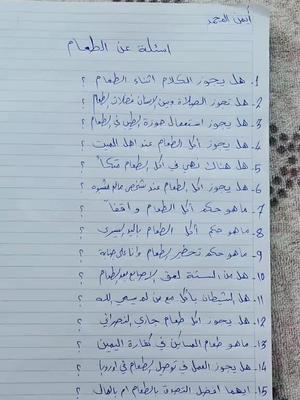 أيمن المحمد
اسئلة عن الطعام
1- هل يجوز الكلام اثناء الطعام ؟
2- هل تجوز الصلاة وبين الاسنان فضلات الطعام ؟
3- هل يجوز استعمال جوزة الطيب في الطعام ؟
4- هل يجوز أكل الطعام عند اهل الميت ؟
5- هل هناك نهي في اكل الطعام متكأ ؟
6- هل يجوز اكل الطعام عند شخص ماله ؟
7- ماهو حكم أكل الطعام واقفاً ؟
8- ماهو حكم أكل الطعام باليد اليسرى ؟
9- ماهو حكم تحضير الطعام وانا على جنابة ؟
10- هل من السنة لعق الاصابع بعد الطعام ؟
11- هل الشيطان يأكل مع من لم يسمي الله ؟
12- هل يجوز اكل طعام جاري النصراني ؟
13- ماهو طعام المساكين في كفارة اليمين ؟
14- هل يجوز العمل في توصيل الطعام في اوروبا ؟
15- ايهما افضل التصدق بالطعام ام بالمال ؟